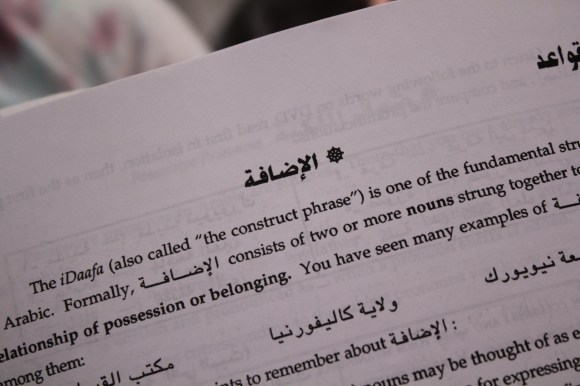 قواعد
❁ الإضافة
The iDaafa (also called “the construct phrase”) is one of the fundamental
Arabic. Formally, الإضـــافـــة consists of two or more nouns strung together to
relationship of possession or belonging. You have seen many examples of
among them:
مكتب ولاية كاليفورنيا نيويورك
to remember about الإضافة:
nouns may be thought of as
for expressing